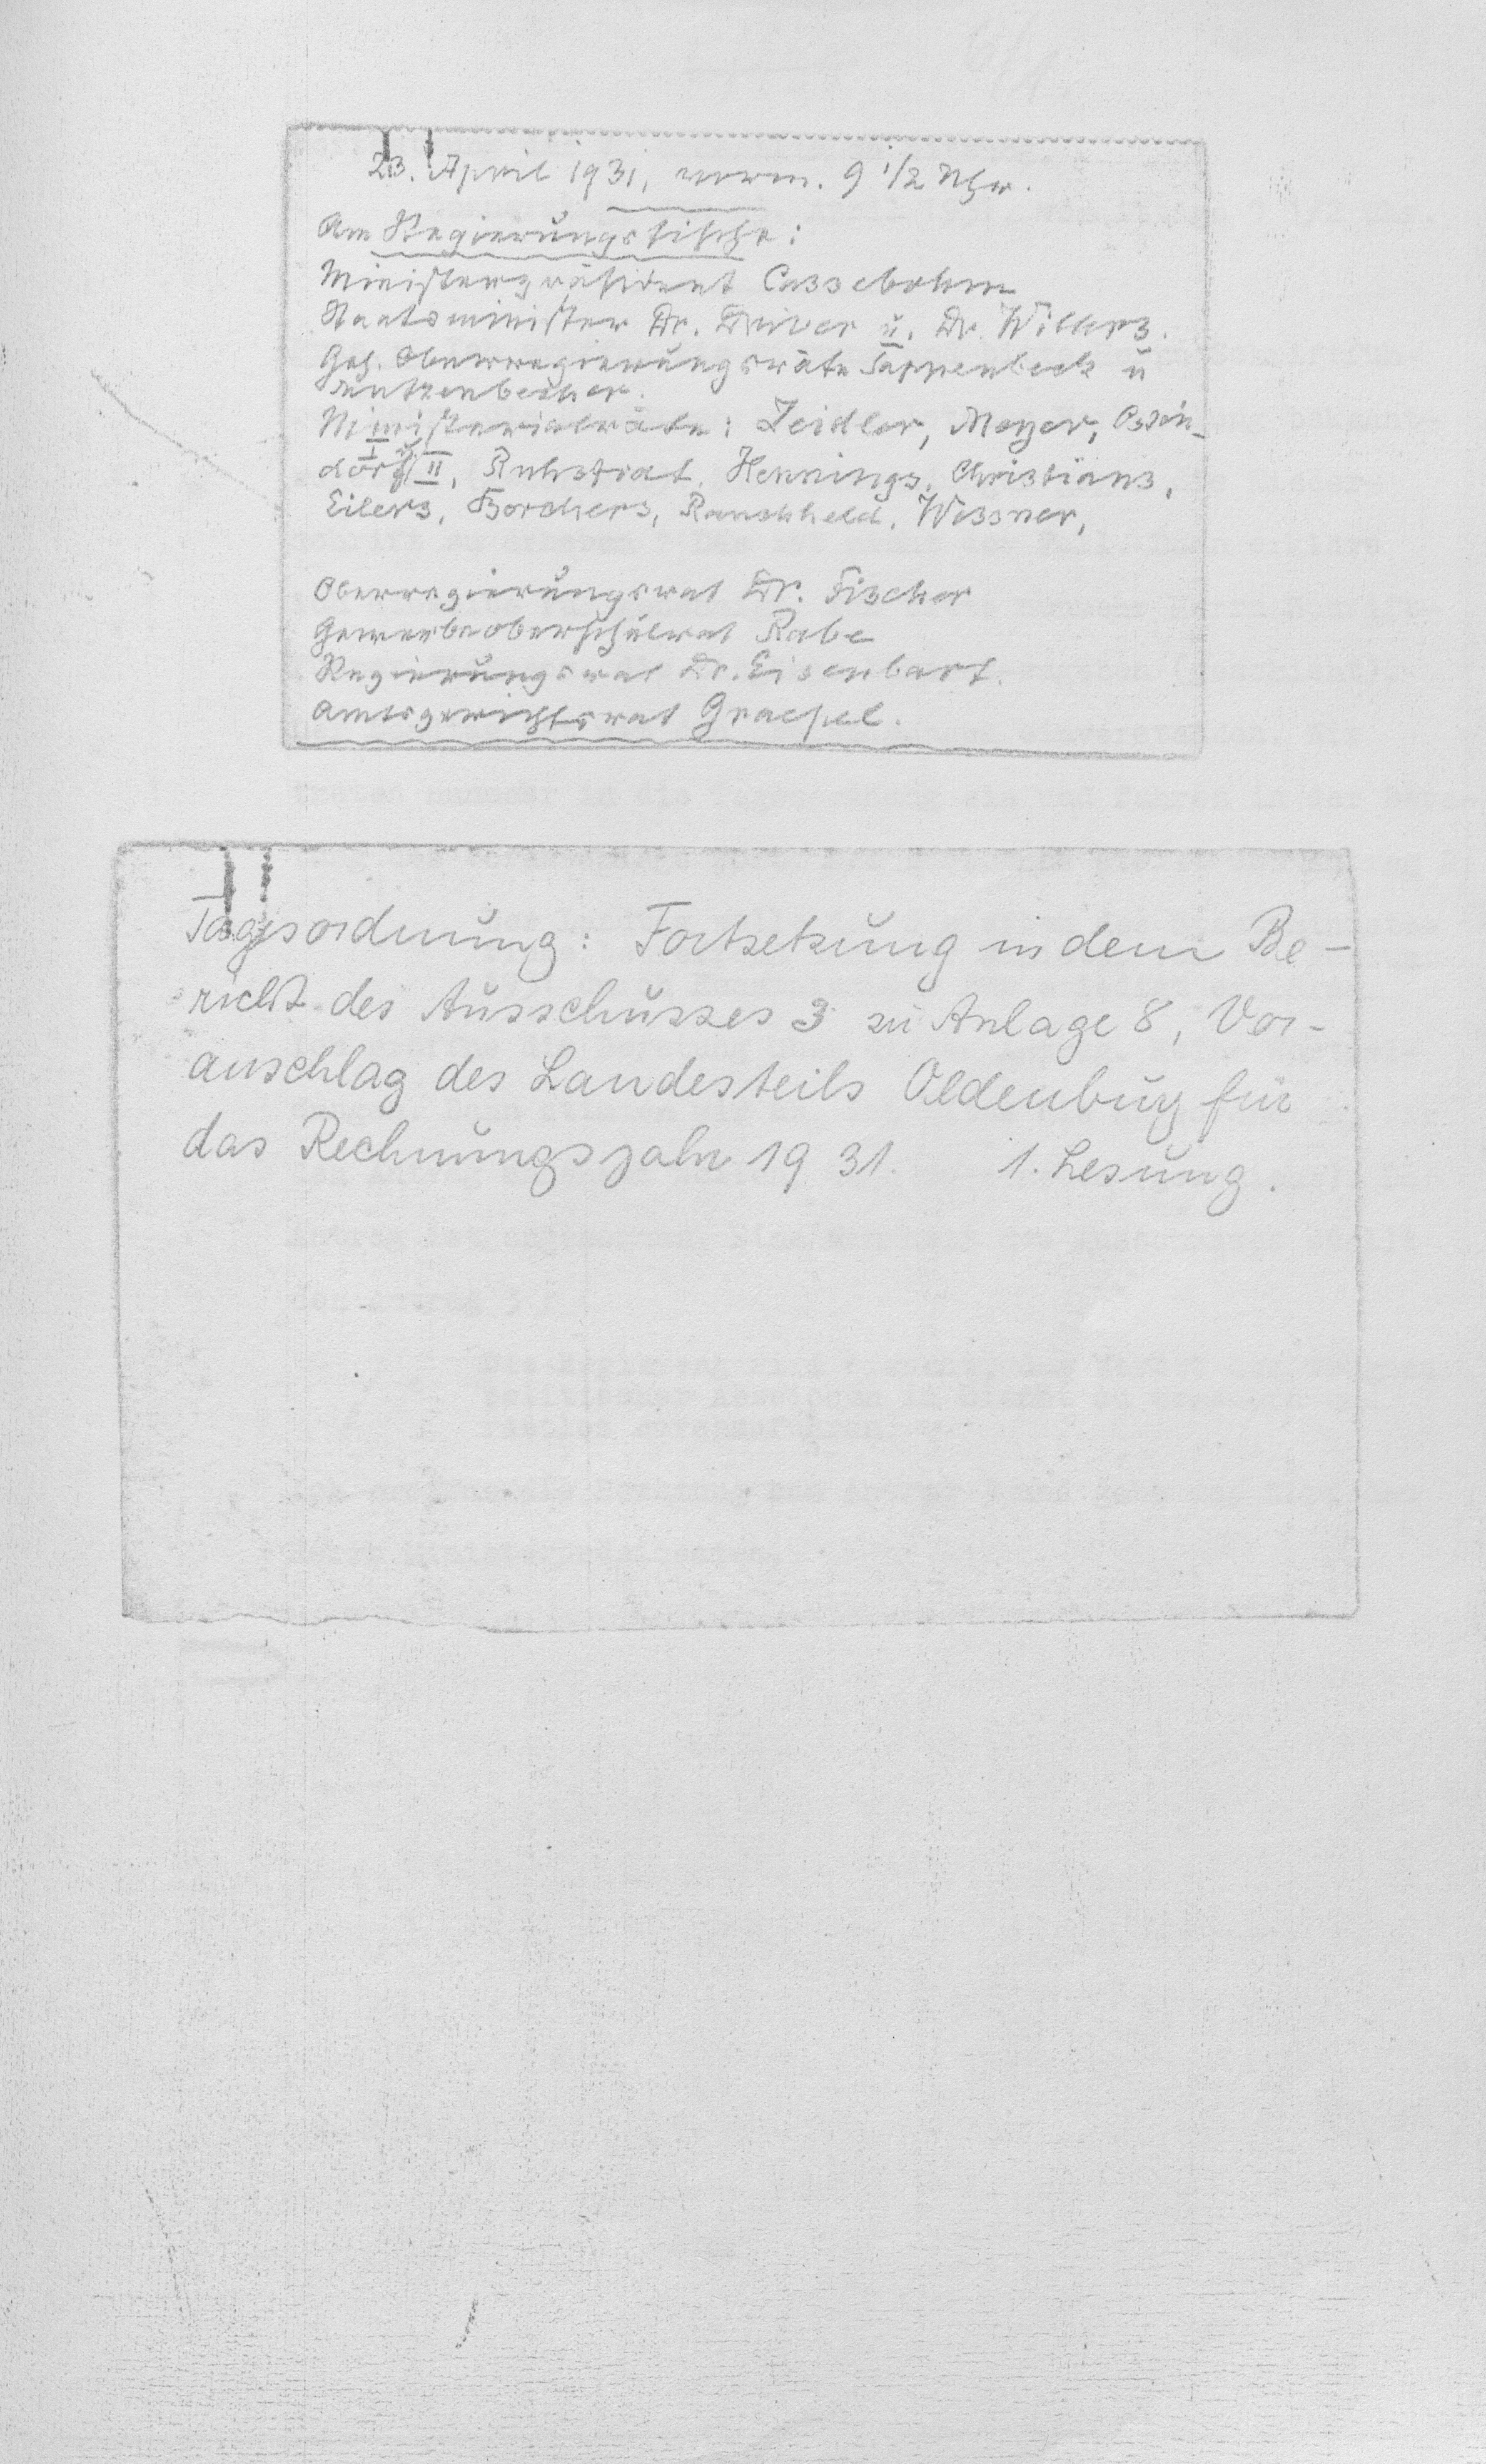 23. April 1931, vorm. 9 1/2 Uhr.
Am Regierungstische:
Ministerpräsident Cassebohm
Staatsminister Dr. Driver u. Dr. Willers.
Geh. Oberregierungsräte Tappenbeck u
Mutzenbecher.
Ministerialräte: Zeidler, Meyer, Ostén-
dorf I u II, Ruhstrat, Hennings, Christians,
Eilers, Borchers, Rauchheld, Wessner,
Oberregierungsrat Dr. Fischer
Gewerbeoberschulrat Rabe
Regierungsrat Dr. Eisenbart.
Amtsgerichtsrat Graepel.
Tagesordnung: Fortsetzung in dem Be-
richt des Ausschusses 3 zu Anlage 8, Vor-
anschlag des Landesteils Oldenburg für
das Rechnungsjahr 1931. 1. Lesung.